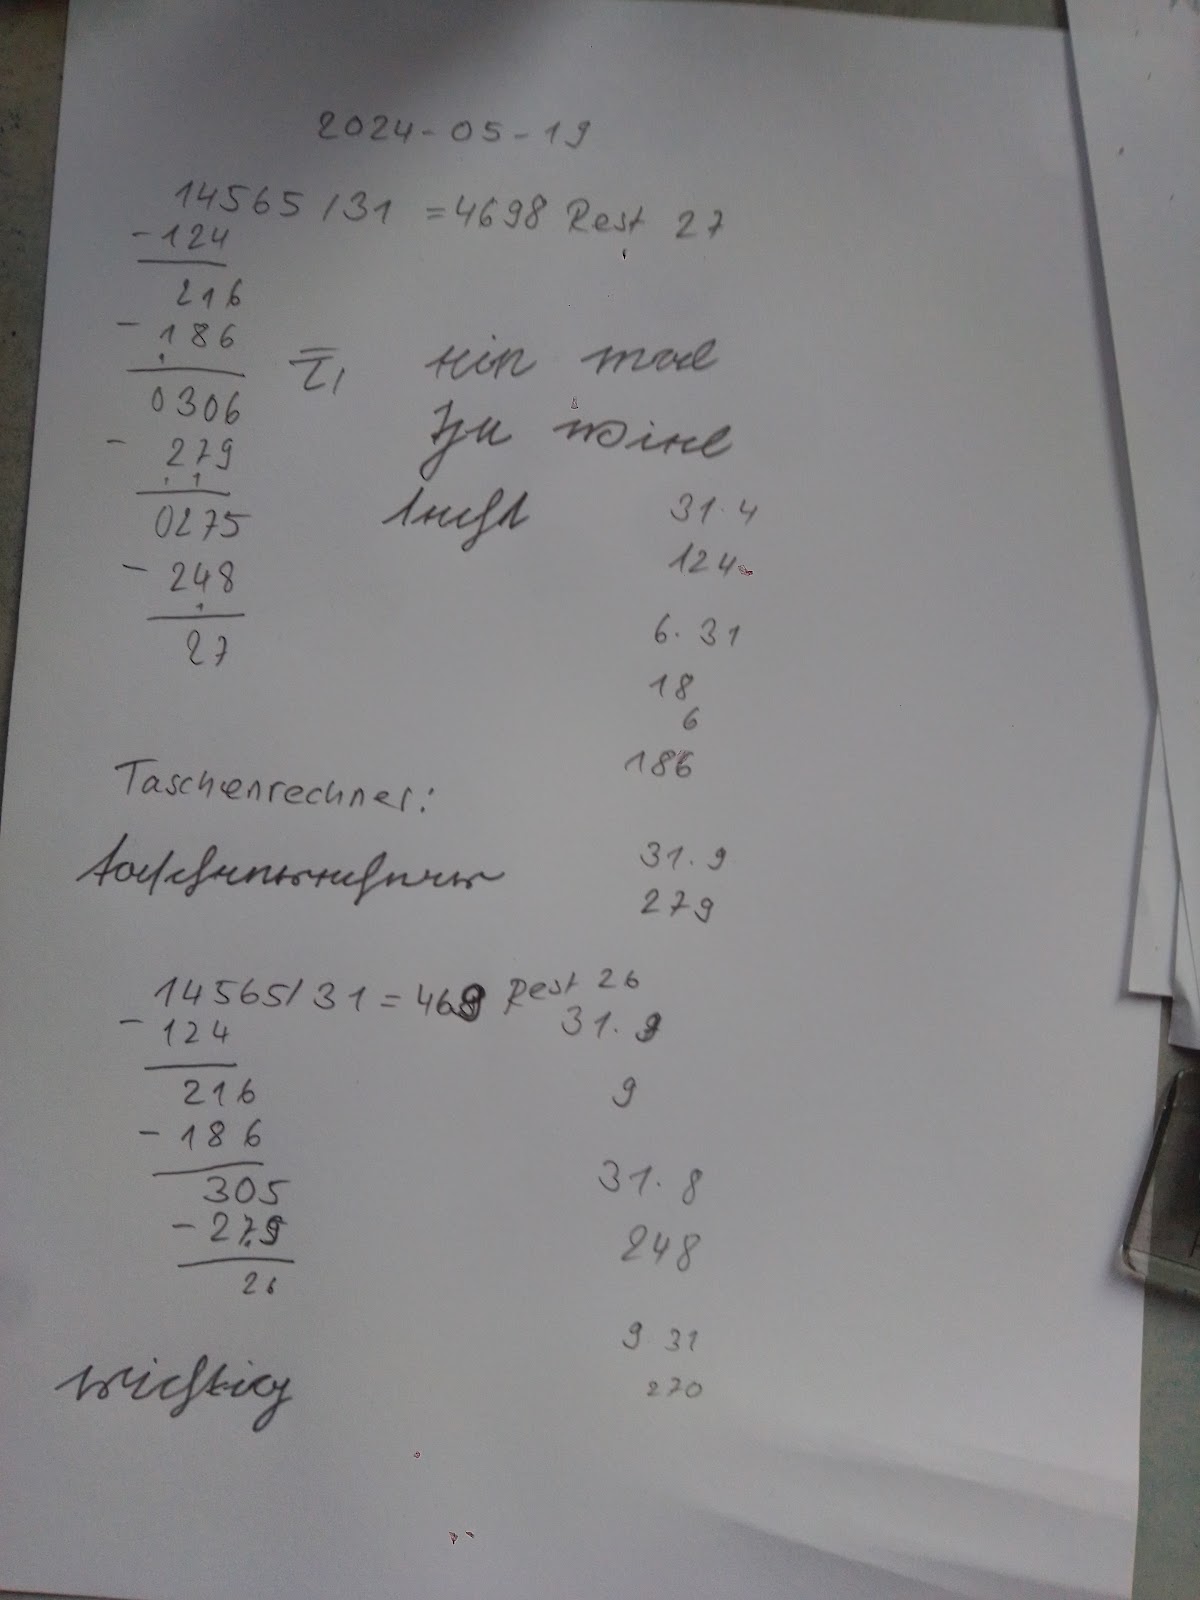 2024-05-19
14565/31 = 4698 Rest 27
-124
216
-186
0306
- 279
0275
- 248
27
ein mal
zu viel
31.4
124
6.31
18
6
186
Taschenrechner:
taschenrechner
31.9
279
14565/31 = 469 Rest 26
- 124
216
- 186
305
- 279
26
31.9
9
31.8
248
9 31
270
wichtig